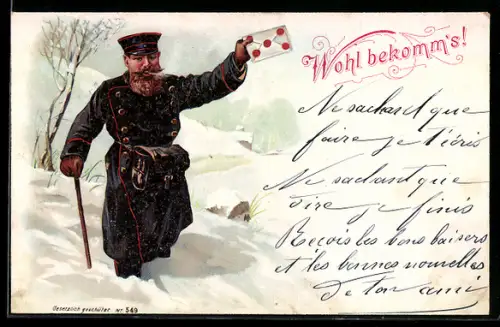 Wohl bekomm's!
Ne sachant que
faire je t'écris
Ne sachant que
dire je finis
Reçois les bons baisers
et les bonnes nouvelles
De ton ami
Gesetzlich geschützt. Nr. 549